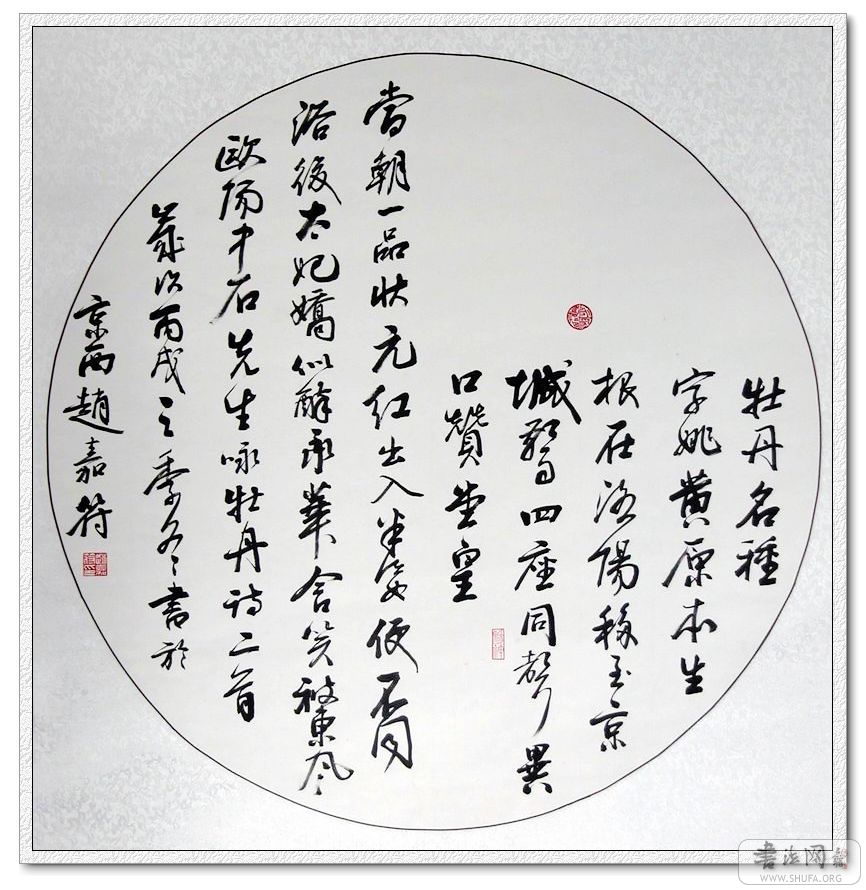 牡丹名種
字姚黄原本生
根在洛陽移至京
城驚四座同聲異
口贊堂皇
當朝一品狀元红出入丰姿便不同
浴後太妃嬌似醉承華含笑被東風
歐陽中石先生咏牡丹诗二首
歲次丙戌之季冬書於
京西趙嘉符
書法网
WWW.SHUFA.ORG